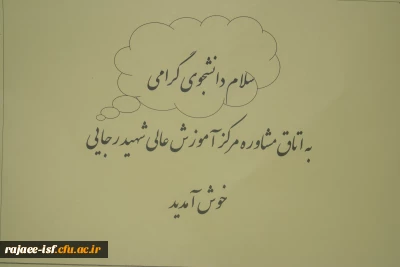 سلام دانشجوی گرامی
به اتاق مشاوره مرکز آموزش عالی شهید رجایی
خوش آمدید
rajaee-isf.cfu.ac.ir